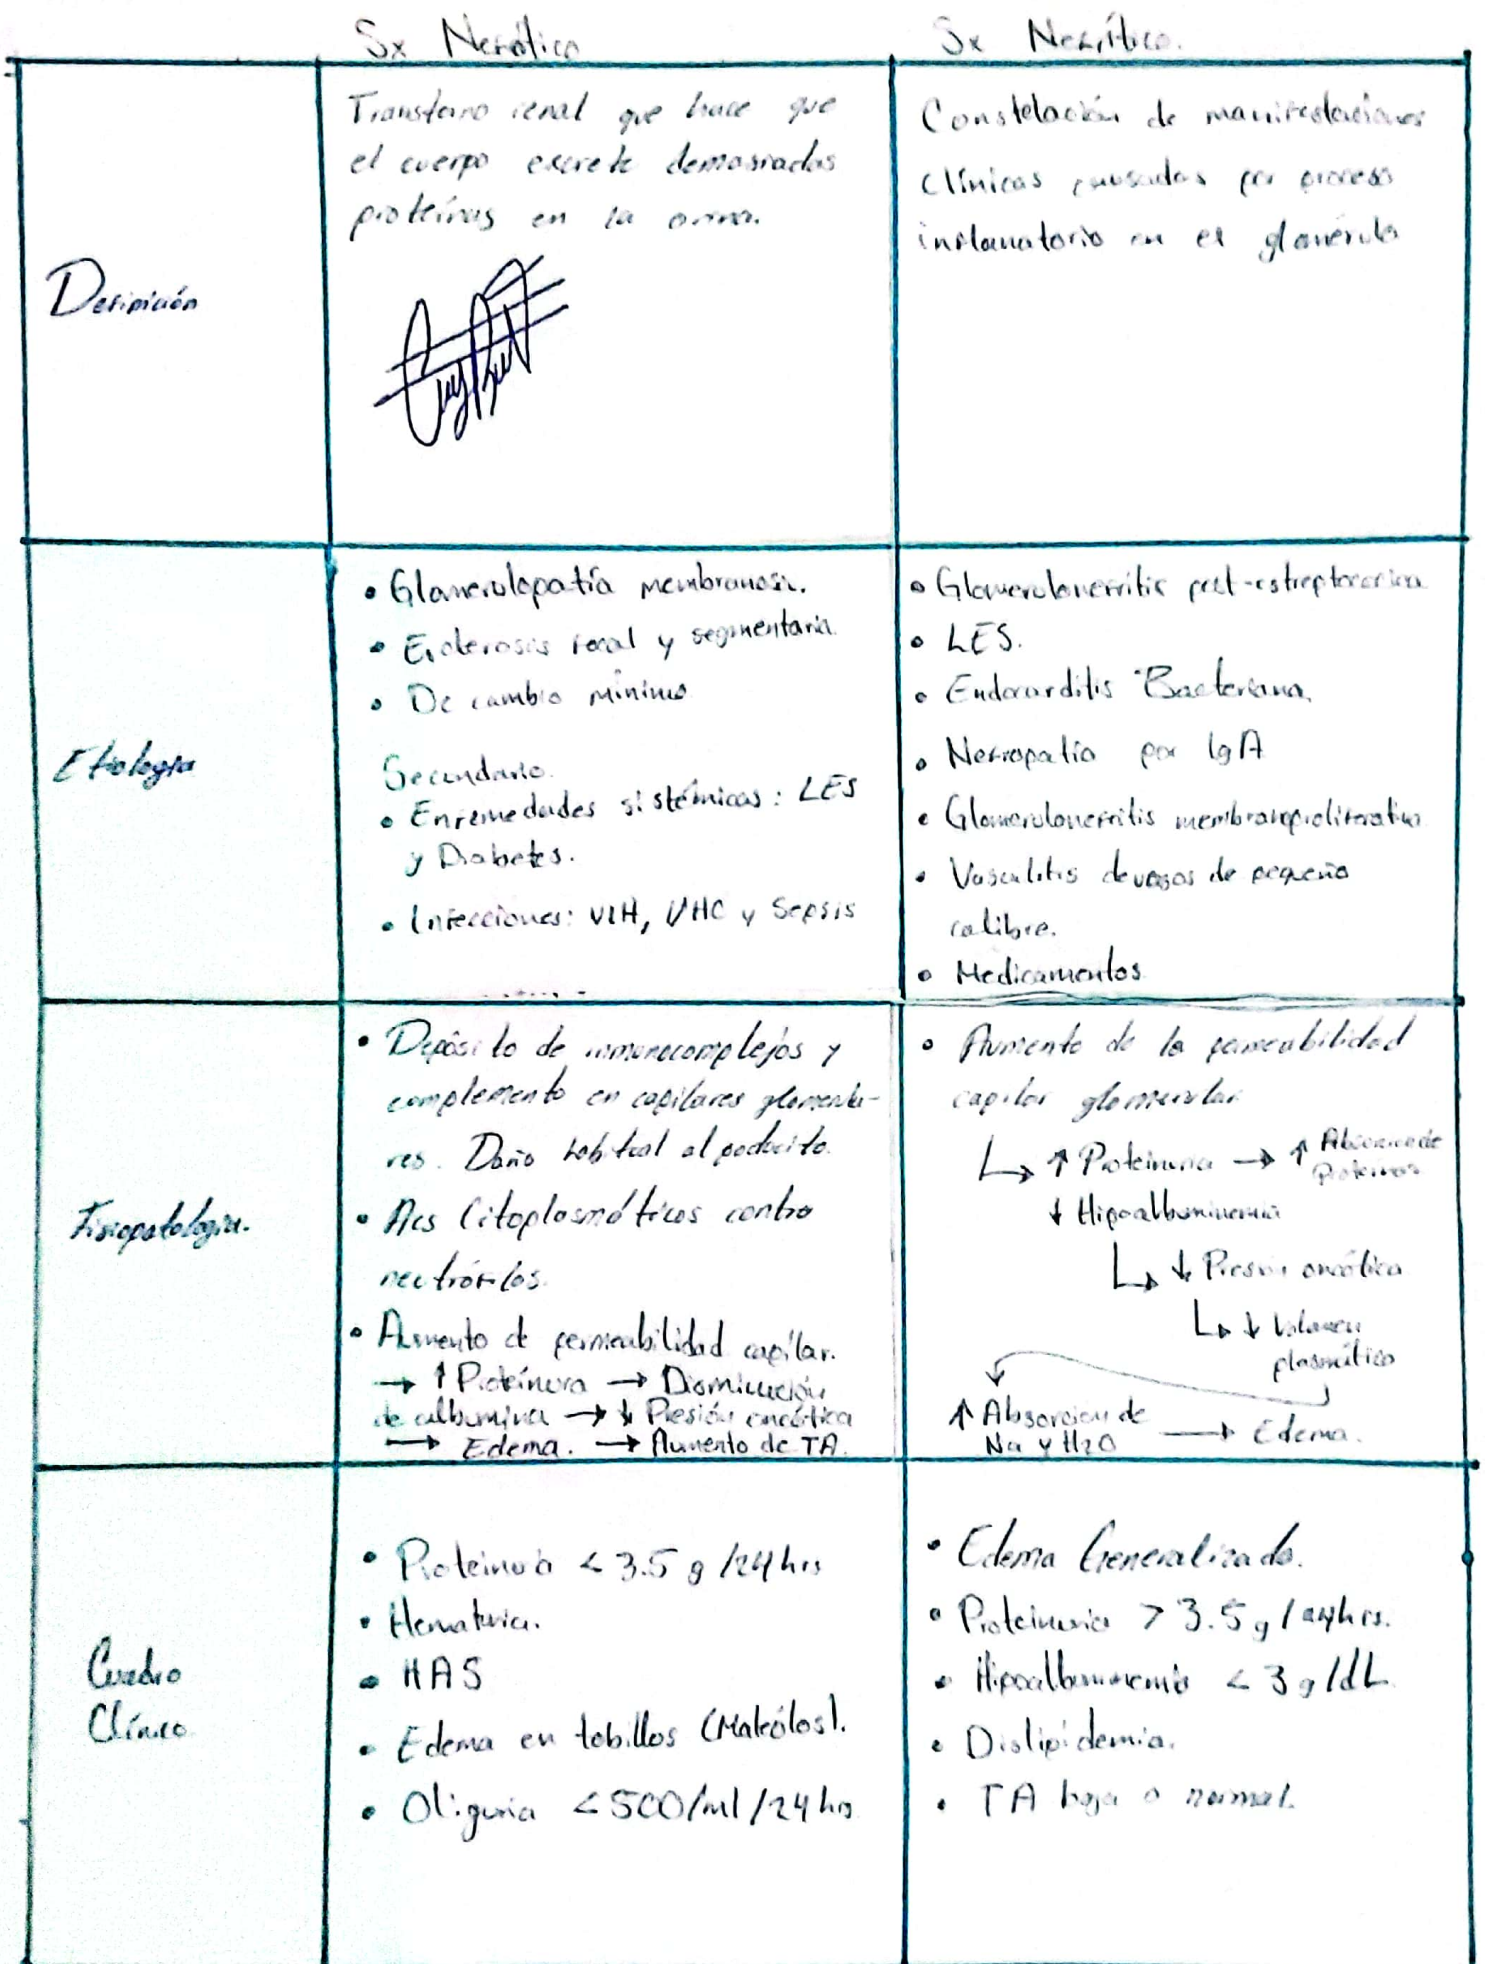 Sx Nefrótico
Sx Nefrítico.
Definición
Transtorno renal que hace que
el cuerpo excrete demasiadas
proteínas en la orina.
Constelación de manifestaciones
clínicas causadas por proceso
inflamatorio en el glomérulo
Etiología
• Glomerulopatía membranosa.
• Esclerosis focal y segmentaria.
• De cambio mínimo
Secundario.
• Enfermedades sistémicas: LES
y Diabetes.
• Infecciones: VIH, VHC y Sepsis
• Glomerulonefritis post-estreptococica
• LES.
• Endocarditis Bacteriana.
• Nefropatía por IgA
• Glomerulonefritis membranoproliferativa
• Vasculitis de vasos de pequeño
calibre.
• Medicamentos
Fisiopatología.
• Depósito de inmunocomplejos y
complemento en capilares glomerula-
res. Daño habitual al podocito.
• Acs Citoplasmáticos contra
neutrófilos.
• Aumento de permeabilidad capilar.
→ ↑ Proteínura → Disminución
de albumina → ↓ Presión oncótica
→ Edema. → Aumento de TA.
• Aumento de la permeabilidad
capilar glomerular
↳ ↑ Proteinuria → ↑ de
Proteínas
↓ Hipoalbuminemia
↳ ↓ Presión oncótica
↳ ↓ Volumen
plasmático
↑ Absorcion de
Na y H2O → Edema.
Cuadro
Clínico
• Proteinuria < 3.5 g /24 hrs
• Hematuria.
• HAS
• Edema en tobillos (Maleólos).
• Oliguria < 500/ml/24 hrs
• Edema Generalizado.
• Proteinuria > 3.5 g / 24hrs.
• Hipoalbuminemia < 3 g/dL
• Dislipidemia.
• TA baja o normal.